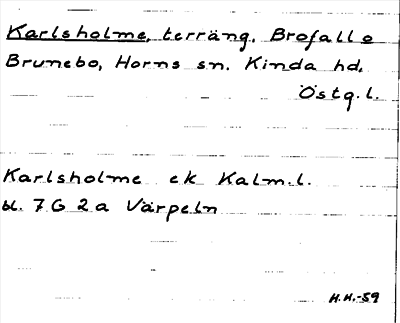 Karlsholme, terräng, Brofall o
Brunebo, Horns sn. Kinda hd.
Östg.l.
Karlsholme ek Kalm.l.
bl. 7G 2a Värpeln
H.H.-59